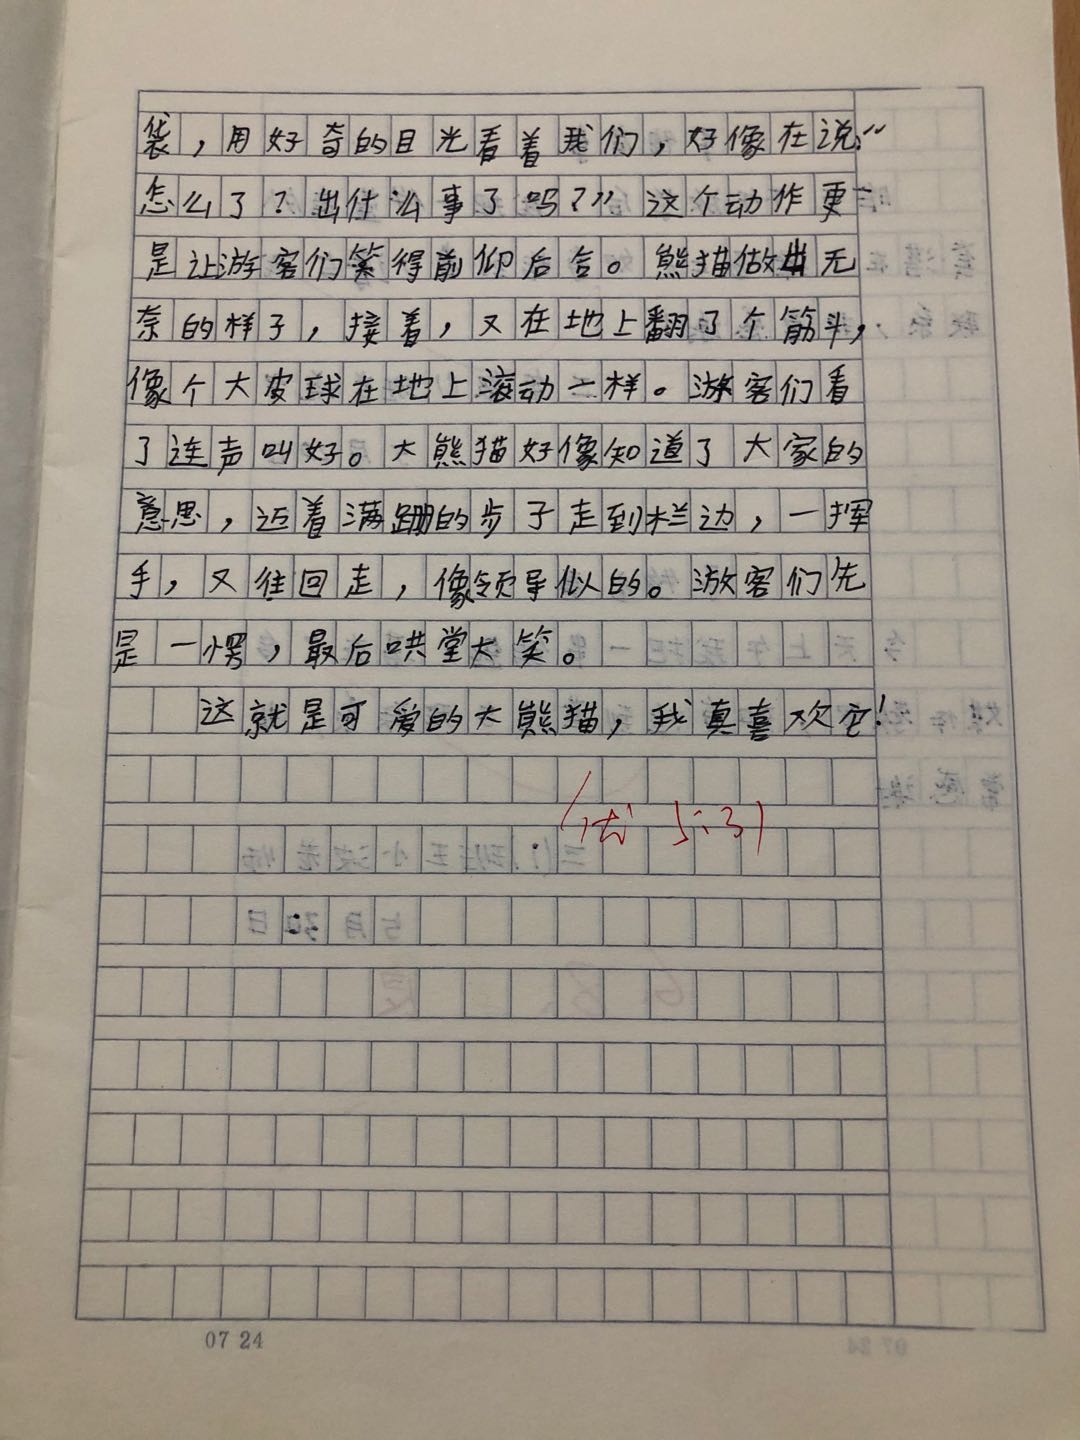 袋，用好奇的目光看着我们，好像在说：“
怎么了？出什么事了吗？”这个动作更
是让游客们笑得前仰后合。熊猫做出无
奈的样子，接着，又在地上翻了个筋斗，
像个大皮球在地上滚动一样。游客们看
了连声叫好。大熊猫好像知道了大家的
意思，迈着满跚的步子走到栏边，一挥
手，又往回走，像领导似的。游客们先
是一愣，最后哄堂大笑。
这就是可爱的大熊猫，我真喜欢它！
优 5.31
07 24